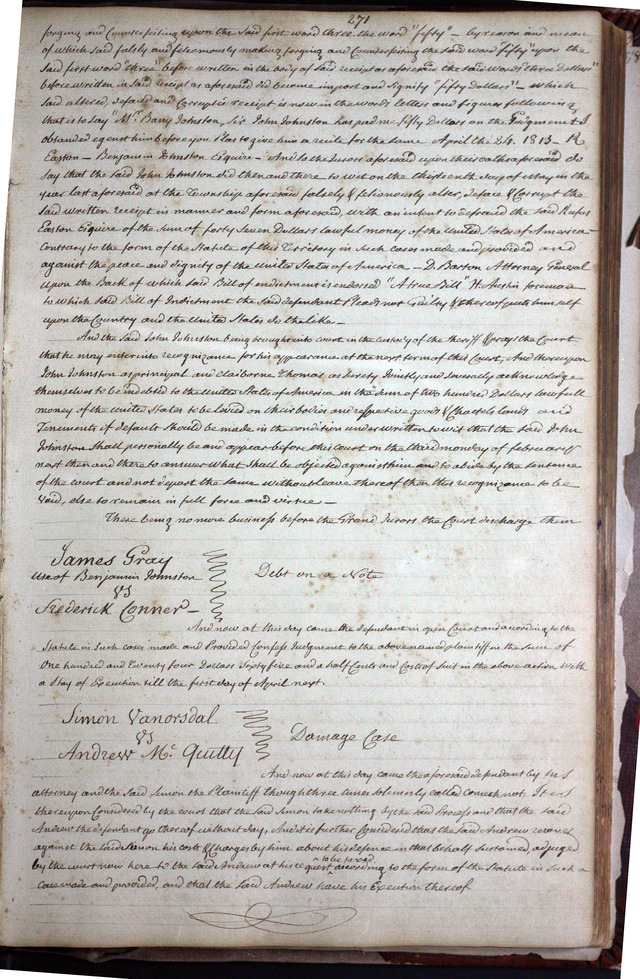 271
forging and Counterfeiting upon the Said first word three the word "fifty" — by reason and means
of which Said falsly and feloniously making forging and Counterfeiting the said word "fifty" upon the
Said first word "three" before written in the body of Said receipt as aforesaid the said words "three Dollars"
before written in Said receipt as aforesaid did become import and Signify "fifty Dollars" — which
Said altered, defaced and Corrupted receipt is now in the words letters and figures following
that is to Say "Mr. Bany Johnston, Sir John Johnston has paid me fifty Dollars on the Judgment I
obtanded against him before you Plas to give him a recite for the Same April the 24. 1813 — R
Easton — Benjamin Johnston Esquire — And so the Jurors aforesaid upon their oaths aforesaid do
Say that the said John Johnston did then and there to wit on the thirteenth day of May in the
year last aforesaid at the Township aforesaid falsely & feloniously alter, deface & Corrupt the
Said written receipt in manner and form aforesaid, with an intent to defraud the said Rufus
Easton Esquire of the Sum of forty Seven Dollars lawful money of the United States of America
Contrary to the form of the Statute of this Territory in Such cases made and provided and
against the peace and dignity of the United States of America — D. Barton Attorney General
upon the Back of which Said Bill of endictment is endorsed "A true Bill" H. Austin foreman
to which said Bill of Indictment the Said defendant Pleads not Guilty & thereof puts himself
upon the Country and the United States do the like —
And the Said John Johnston being brought into court in the custody of the Sheriff & prays the Court
that he may enter into recognizance for his appearance at the next term of this Court, And thereupon
John Johnston as principal and Claiborne Thomas, as Surety Jointly and Severally acknowledge
themselves to be indebted to the United States of America in the Sum of two hundred Dollars lawfull
money of the United States to be levied on their bodies and respective goods & Chattels lands and
Tenements if default Should be made in the condition underwritten to wit that the Said John
Johnston Shall personally be and appear before this Court on the third monday of february
next then and there to answer what Shall be objected against him and to abide by the Sentence
of the court and not depart the same without leave thereof then this recognizance to be
Void, else to remain in full force and virtue —
There being no more business before the Grand Jurors the Court discharge them
James Gray
use of Benjamin Johnston
vs
Frederick Conner —
Debt on a Note
And now at this day came the defendant in open Court and according to the
Statute in Such cases made and Provided Confess Judgment to the above named plaintiff in the Sum of
One hundred and twenty four Dollars Sixty five and a half Cents and Costs of Suit in the above action with
a Stay of Execution till the first day of April next.
Simon Vanorsdal
vs
Andrew Mc. Quitty
Damage Case
And now at this day came the aforesaid defendant by his
attorney and the Said Simon the Plaintiff though three times solemnly called cometh not. It is
thereupon Considered by the court that the Said Simon take nothing by the said Process and that the Said
Andrew the defendant go thereof without day, And it is further Considered that the Said Andrew recover
against the Said Simon his cost & Charges by him about his defence in that behalf Sustained, adjuged
by the court now here to the Said Andrew at his request, to be taxed according to the form of the Statute in Such a
Case made and provided, and that the Said Andrew have his Execution thereof